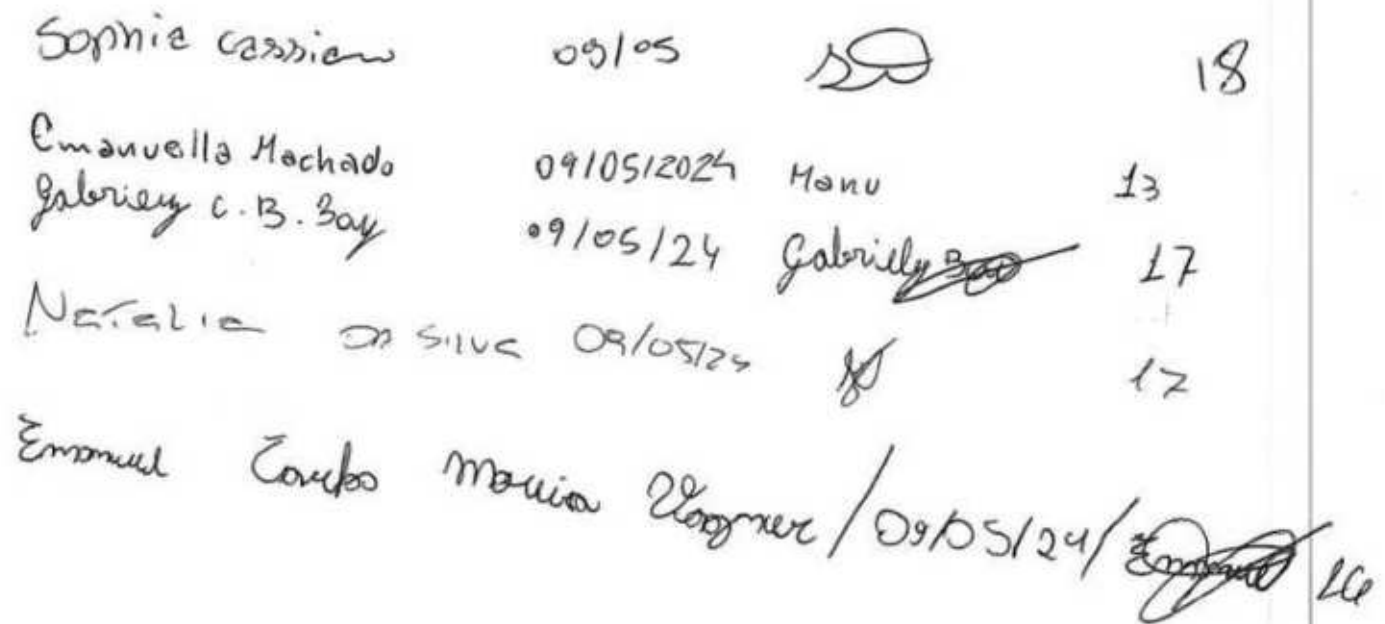 Sophie Cassiano 09/05 18
Emanuella Machado 09/05/2024 Manu 13
Gabriely C. B. Bay 09/05/24 Gabrielly Bay 17
Natalia da Silva 09/05/24 17
Emanuel Carlos Wagner / 09/05/24 / Emanuel 16